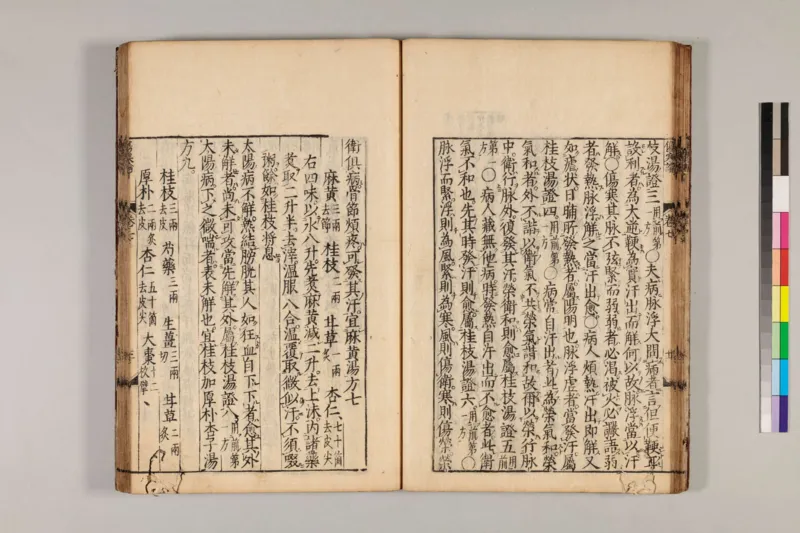 枝湯證三用前第一方○夫病脉浮大問病者言但便鞕耳
設利者為大逆鞕為實汗出而解何以故脉浮當以汗
解○傷寒其脉不弦緊而弱弱者必渴被火必譫語弱
者發熱脉浮解之當汗出愈○病人煩熱汗出即解又
如瘧狀日晡所發熱者屬陽明也脉浮虛者當發汗屬
桂枝湯證四用前第一方○病常自汗出者此為榮氣和榮
氣和者外不諧以衛氣不共榮氣諧和故爾以榮行脉
中衛行脉外復發其汗榮衛和則愈屬桂枝湯證五用前
第一方○病人藏無他病時發熱自汗出而不愈者此衛
氣不和也先其時發汗則愈屬桂枝湯證六用前第一方○
脉浮而緊浮則為風緊則為寒風則傷衛寒則傷榮榮
衛俱病骨節煩疼可發其汗宜麻黃湯方七
麻黃三兩去節 桂枝二兩 甘草一兩炙 杏仁七十箇去皮尖
右四味以水八升先煑麻黃減二升去上沫內諸藥
煑取二升半去滓溫服八合溫覆取微似汗不須啜
粥餘如桂枝將息
太陽病不解熱結膀胱其人如狂血自下下者愈其外
未解者尚未可攻當先解其外屬桂枝湯證八用前第一方
太陽病下之微喘者表未解也宜桂枝加厚朴杏子湯
方九
桂枝三兩去皮 芍藥三兩 生薑三兩切 甘草二兩炙
厚朴二兩炙去皮 杏仁五十箇去皮尖 大棗十二枚擘